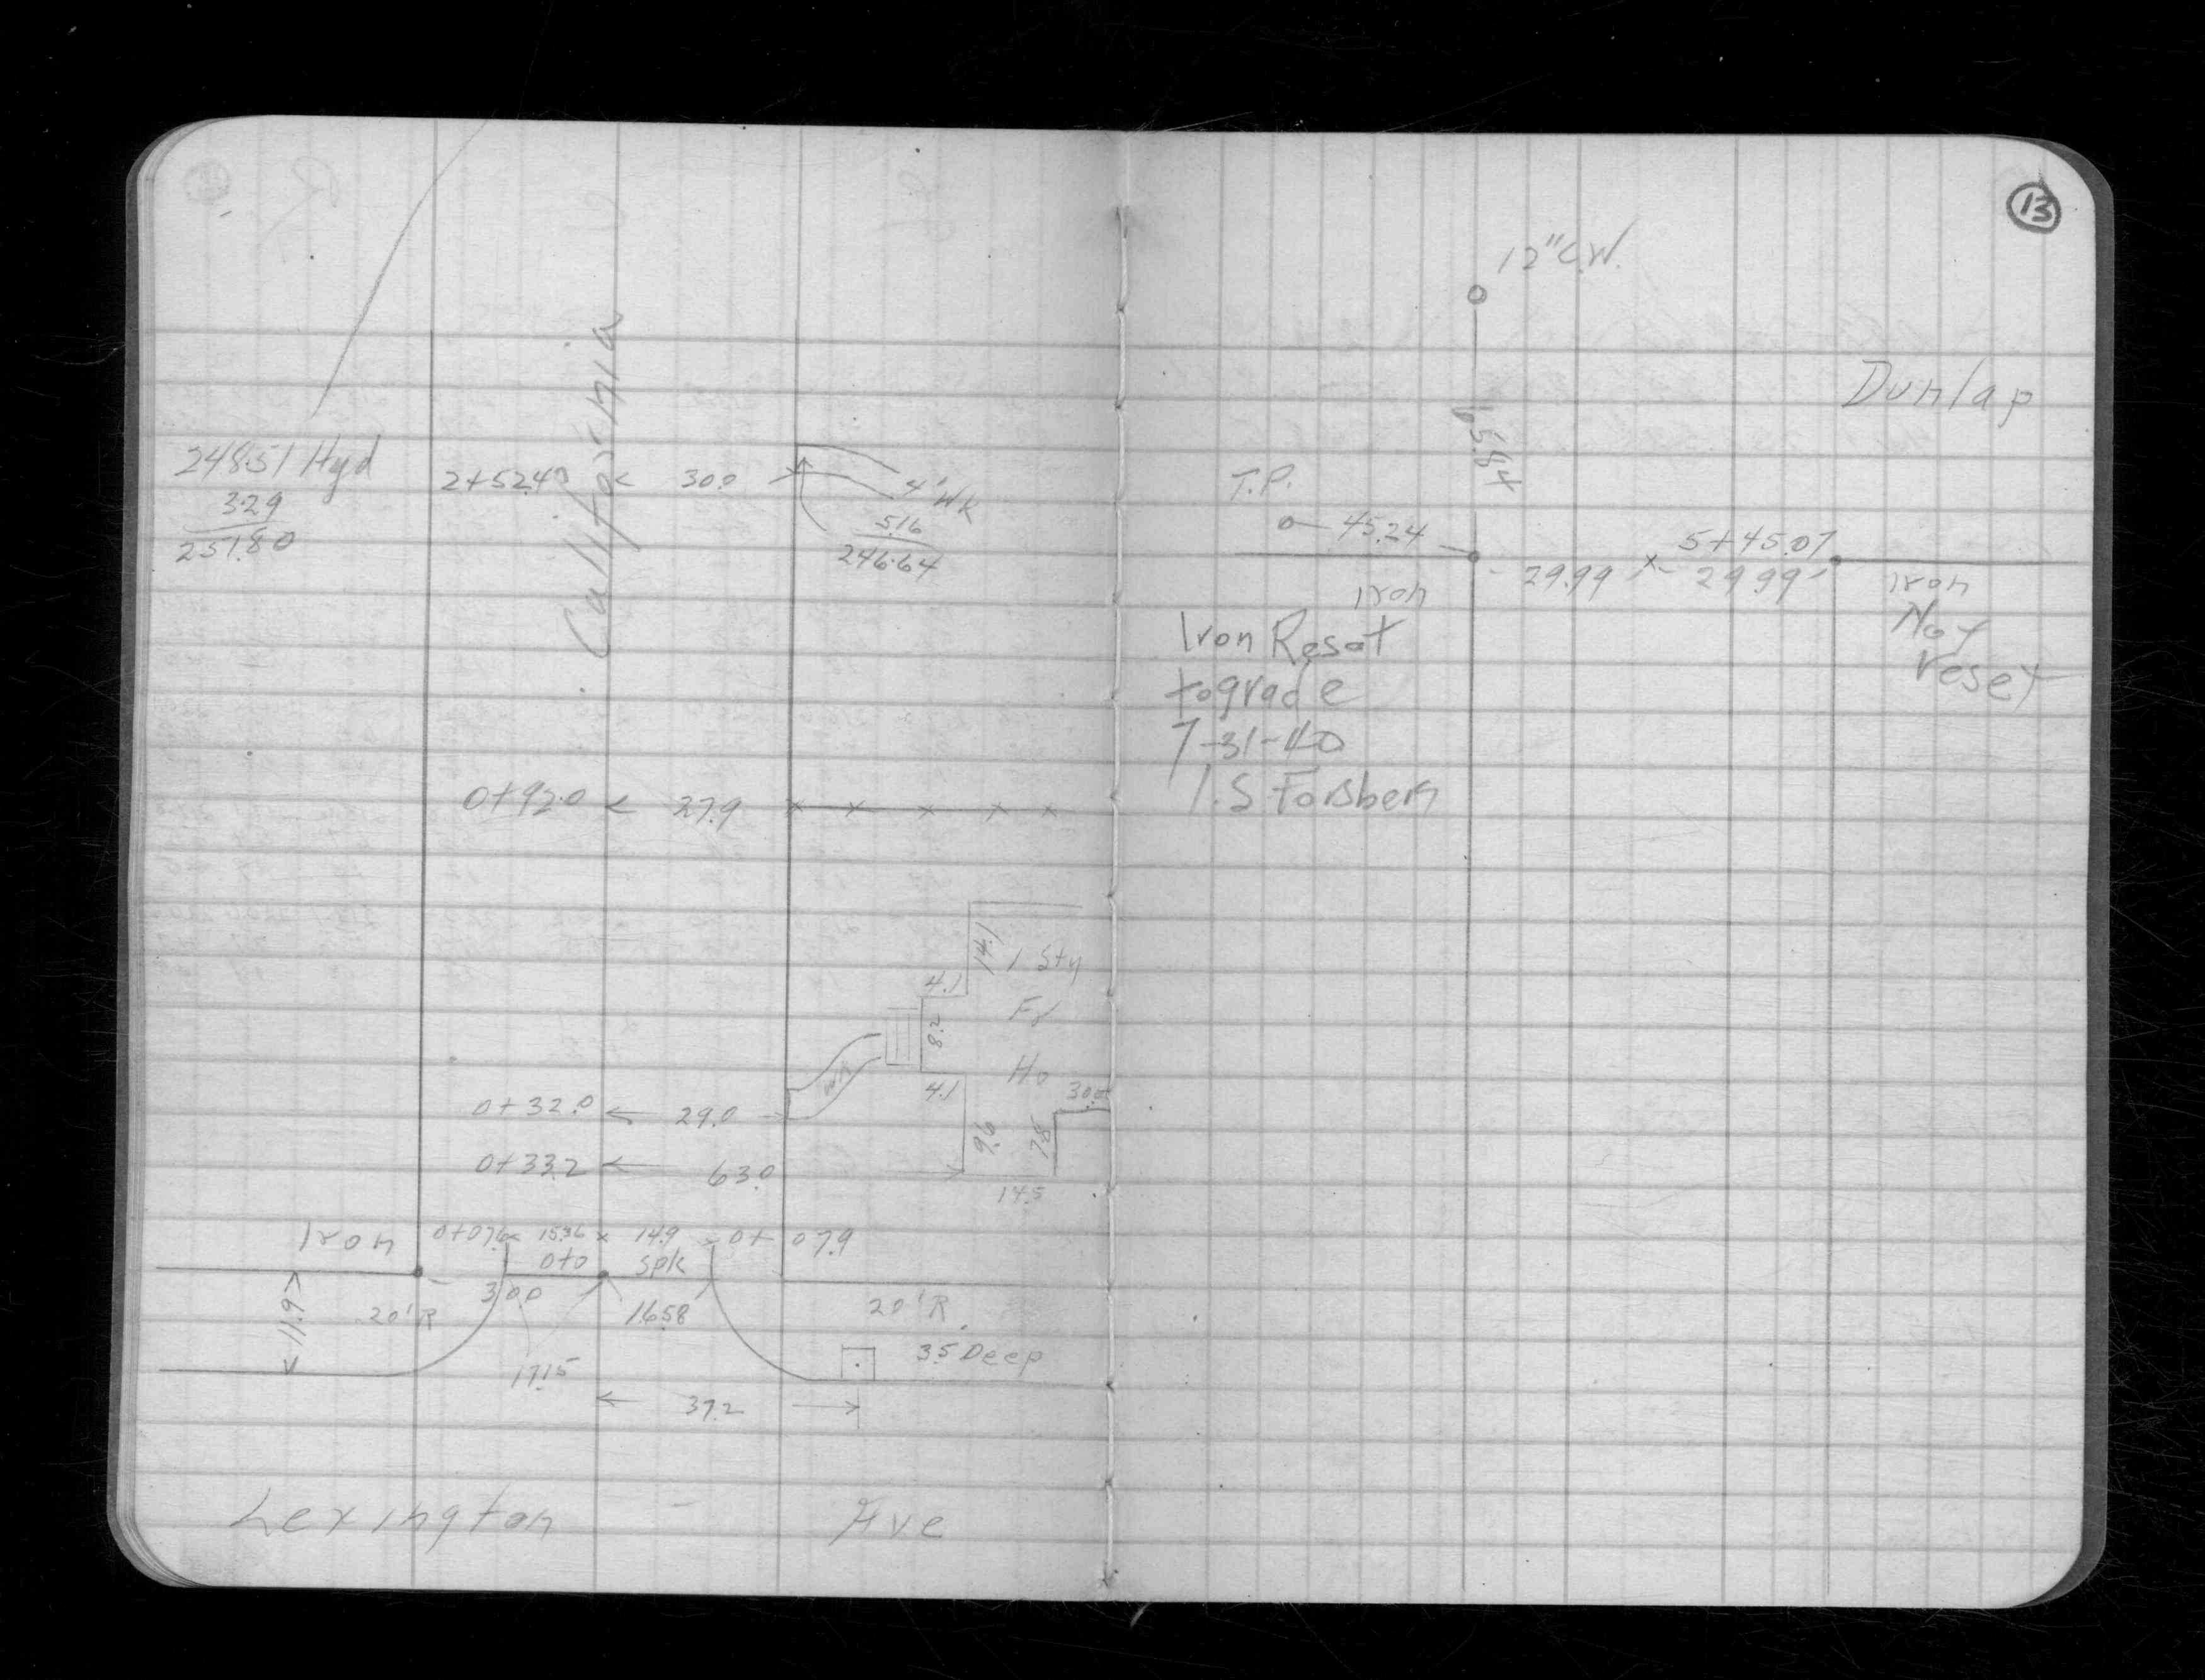 California
248.51 Hyd
3.29
251.80
2+52.4
30.0
4' Wk
5.16
246.64
0+92.0
27.9
14.1
1 Sty
4.1
Fr
8.2
Ho
4.1
30.0±
Wk
0+32.0
29.0
9.6
7.8
0+33.2
63.0
14.5
Iron
0+07.6
15.36
14.9
0+07.9
0+0
spk
30.0
11.97
20' R
16.58
20' R.
17.15
3.5 Deep
37.2
Lexington Ave
13
12" C.W.
Dunlap
T.P.
45.24
5+45.07
29.99
29.99
Iron
Iron
Iron Reset
to grade
7-31-40
Not
reset